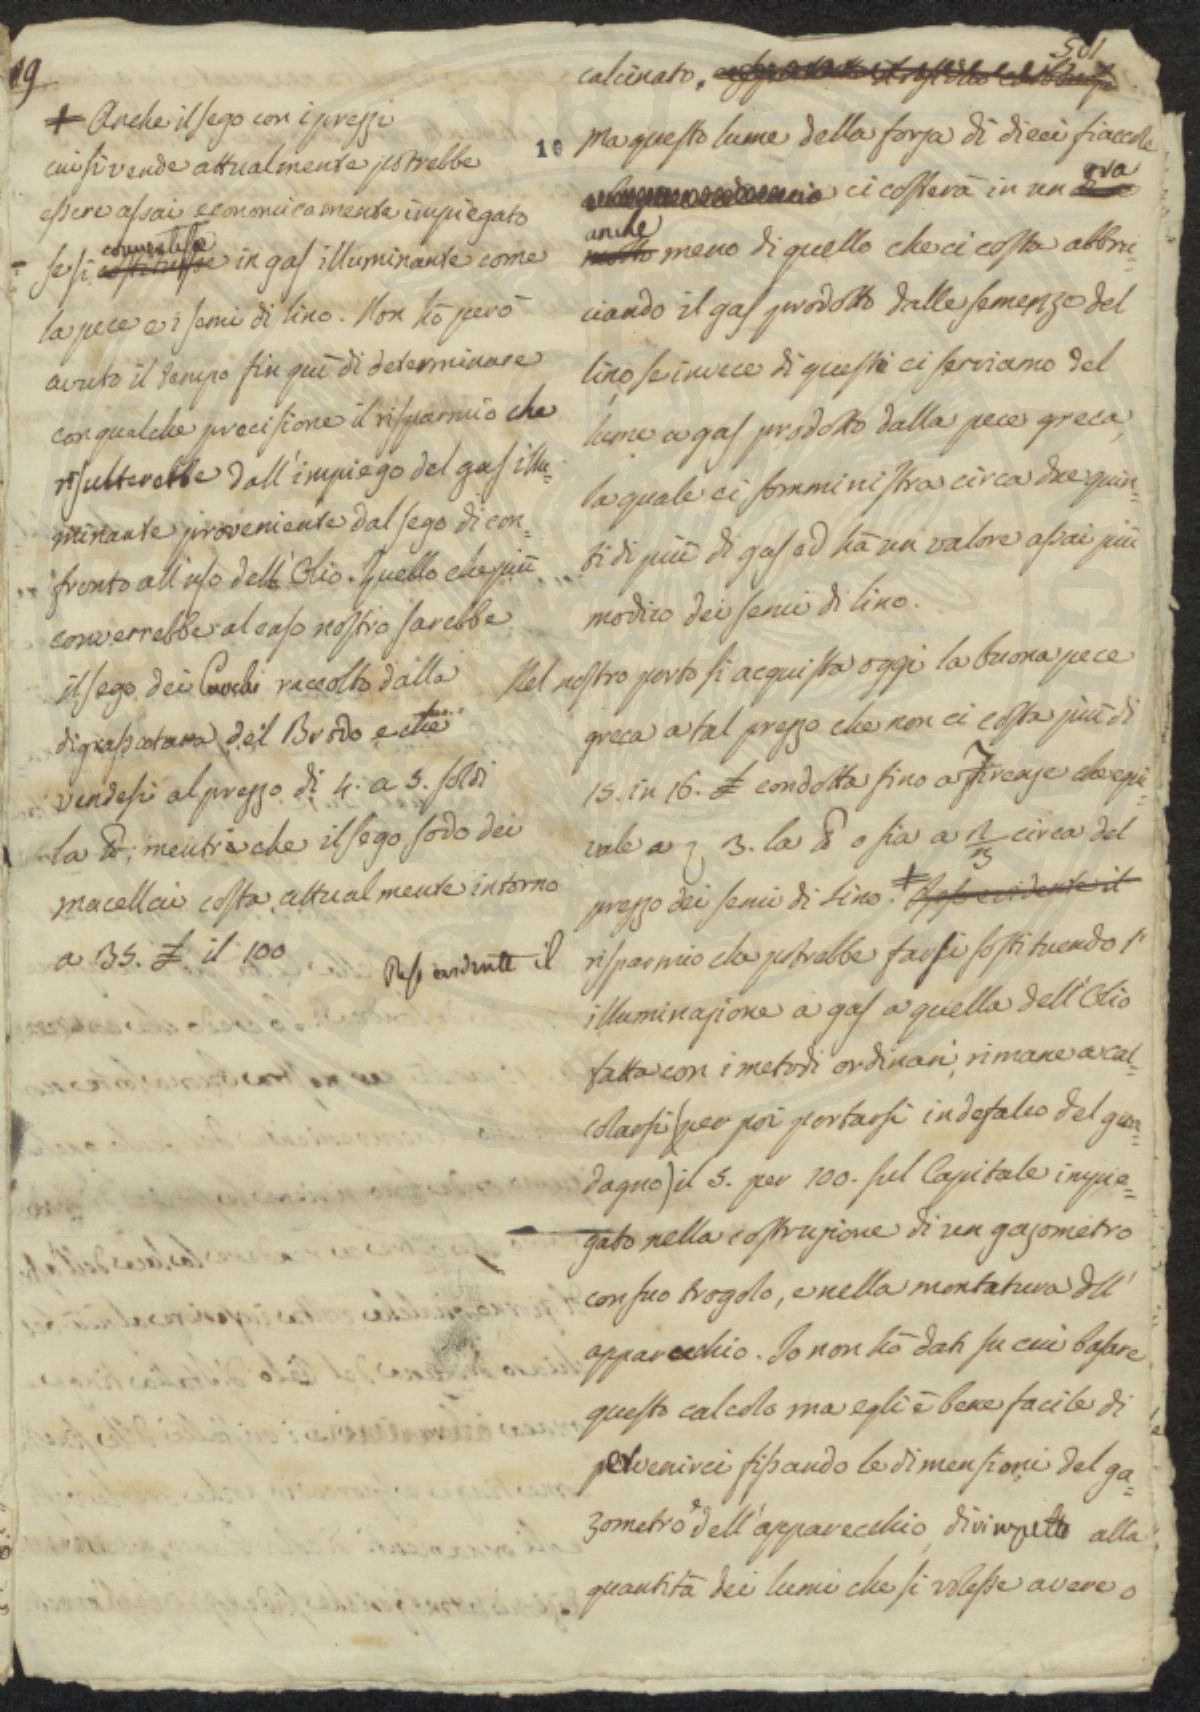 19
+ Anche il sego con i prezzi
cui si vende attualmente potrebbe
essere assai economicamente impiegato
convertisse
se si costituisse in gas illuminante come
la pece e i semi di lino. Non hò però
avuto il tempo fin quì di determinare
con qualche precisione il risparmio che
risulterebbe dall'impiego del gas illu=
minante proveniente dal sego di con=
fronto all'uso dell'Olio. Quello che più
converrebbe al caso nostro sarebbe
il sego dei Cuochi raccolto dalla
digrassatura del Brodo e che
vendesi al prezzo di 4. a 5. soldi
la ℔; mentre che il sego sodo dei
macellai costa attualmente intorno
a 35. £ il 100
Reso evidente il
501
calcinato.
10
Ma questo lume della forza di dieci fiaccole
ora
ci costerà in un
anche
molto meno di quello che ci costa abbru=
ciando il gas prodotto dalle semenze del
lino, se invece di queste ci serviamo del
lume a gas prodotto dalla pece greca,
la quale ci somministra circa due quin=
ti di più di gas ed hà un valore assai più
modico dei semi di lino.
Nel nostro porto si acquista oggi la buona pece
greca a tal prezzo che non ci costa più di
15. in 16. £ condotta fino a Firenze che equi=
vale a 3. la ℔ o sia a circa del
prezzo dei semi di Lino. + Reso evidente il
risparmio che potrebbe farsi sostituendo l'
illuminazione a gas a quella dell'Olio
fatta con i metodi ordinari, rimane a cal=
colarsi (per poi portarsi in defalco del gua=
dagno) il 5. per 100. sul Capitale impie=
gato nella costruzione di un gazometro
con suo trogolo, e nella montatura dell'
apparecchio. Io non hò dati su cui basare
questo calcolo ma egli è bene facile di
pervenirci fissando le dimensioni del ga=
zometro e dell'apparecchio, dirimpetto alla
quantità dei lumi che si volesse avere o